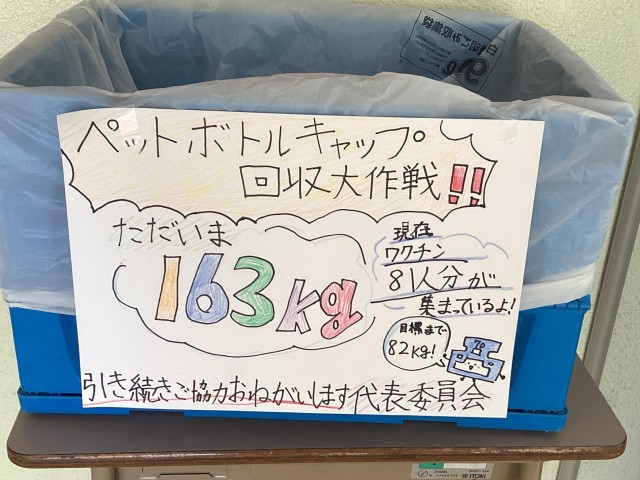 ペットボトルキャップ
回収大作戦!!
ただいま
163kg
現在
ワクチン
81人分が
集まっているよ!
目標まで
82kg!
引き続きご協力おねがいします代表委員会
ITOKI